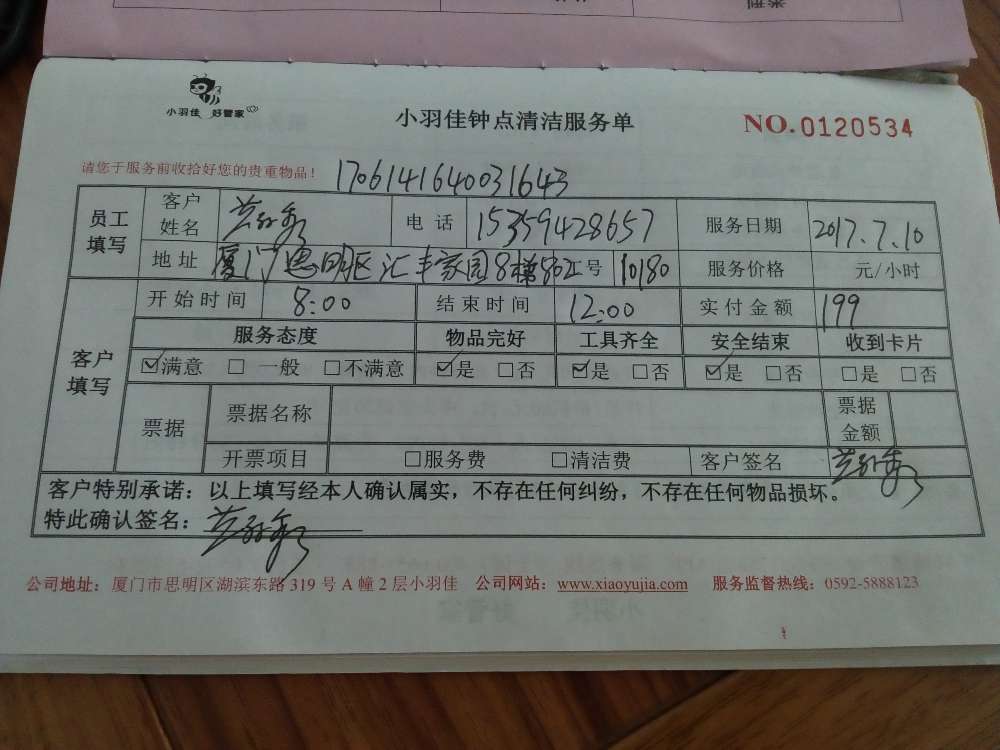 小羽佳 好管家
小羽佳钟点清洁服务单
NO.0120534
请您于服务前收拾好您的贵重物品！ 1706141640031643
员工填写 客户姓名 电话 15359428657 服务日期 2017.7.10
地址 厦门思明区汇丰家园8梯802 工号 10180 服务价格 元/小时
客户填写 开始时间 8:00 结束时间 12:00 实付金额 199
服务态度 物品完好 工具齐全 安全结束 收到卡片
☑满意 □一般 □不满意 ☑是 □否 ☑是 □否 ☑是 □否 □是 □否
票据 票据名称 票据金额
开票项目 □服务费 □清洁费 客户签名
客户特别承诺：以上填写经本人确认属实，不存在任何纠纷，不存在任何物品损坏。
特此确认签名：
公司地址：厦门市思明区湖滨东路 319 号 A 幢 2 层小羽佳 公司网站：www.xiaoyujia.com 服务监督热线：0592-5888123